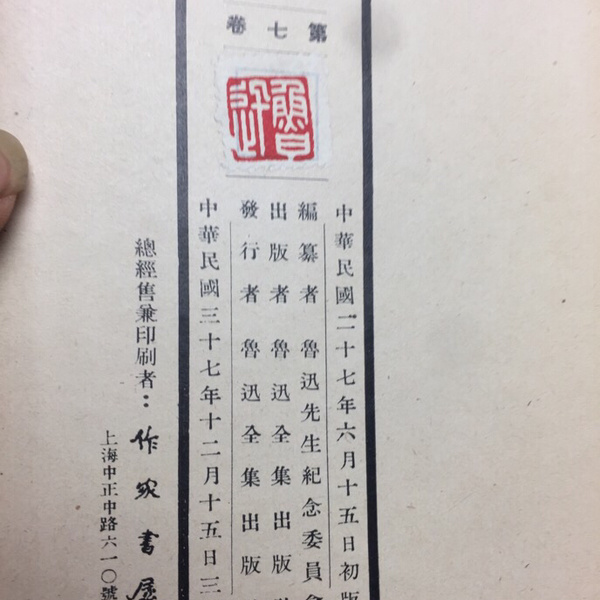 第七卷
魯迅
中華民國二十七年六月十五日初版
編纂者 魯迅先生紀念委員會
出版者 魯迅全集出版
發行者 魯迅全集出版
中華民國三十七年十二月十五日三
總經售兼印刷者：作家書屋
上海中正中路六一〇號